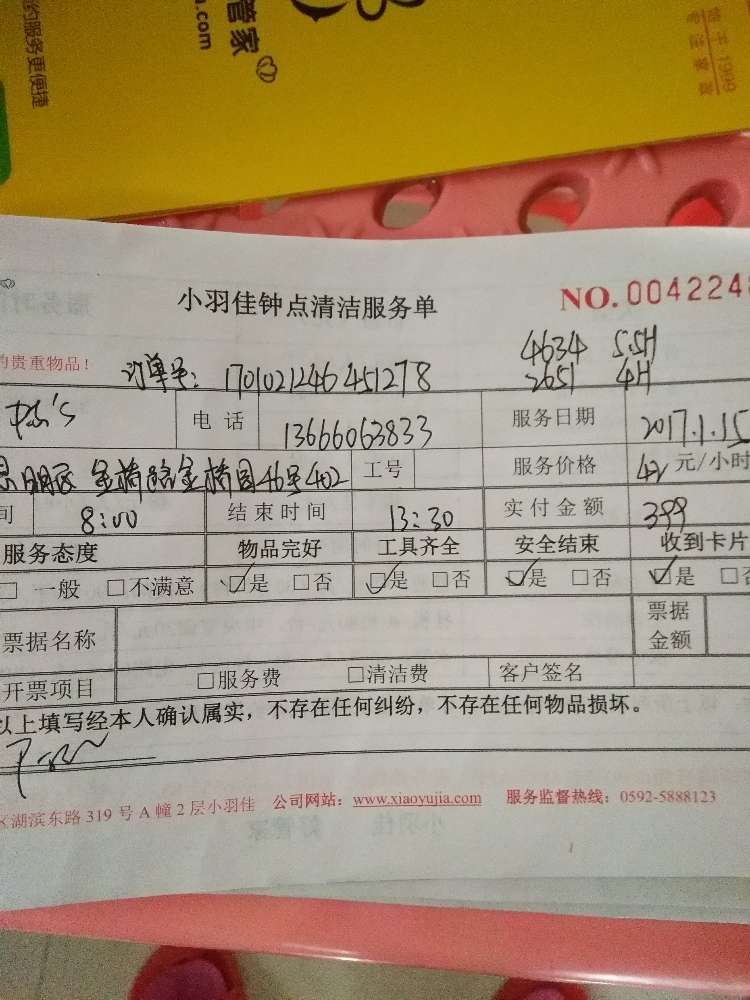 约服务更便捷
管家
.com
小羽佳钟点清洁服务单
NO.004224
的贵重物品！
订单号：1701021246451278
4634 5.5H
2651 4H
电 话
13666063833
服务日期
2017.1.15
思明区 金桥路金桥园46号402
工号
服务价格
42 元/小时
间
8:00
结束时间
13:30
实付金额
399
服务态度
物品完好
工具齐全
安全结束
收到卡片
□ 一般 □不满意
☑是 □否
☑是 □否
☑是 □否
☑是 □否
票据名称
票据
金额
开票项目
□服务费 □清洁费
客户签名
以上填写经本人确认属实，不存在任何纠纷，不存在任何物品损坏。
区湖滨东路 319 号 A 幢 2 层小羽佳 公司网站：www.xiaoyujia.com 服务监督热线：0592-5888123